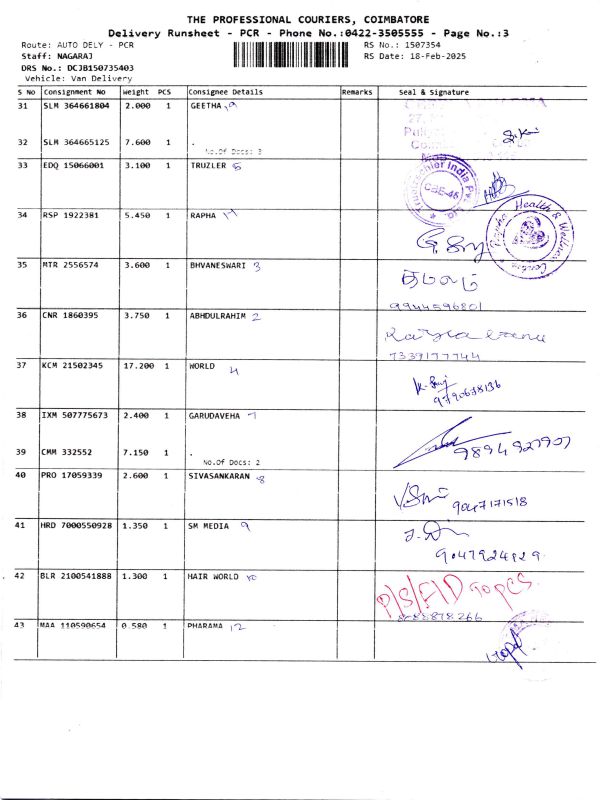 THE PROFESSIONAL COURIERS, COIMBATORE
Delivery Runsheet - PCR - Phone No.:0422-3505555 - Page No.:3
Route: AUTO DELY - PCR RS No.: 1507354
Staff: NAGARAJ RS Date: 18-Feb-2025
DRS No.: DCJB150735403
Vehicle: Van Delivery
S No Consignment No Weight PCS Consignee Details Remarks Seal & Signature
31 SLM 364661804 2.000 1 GEETHA
32 SLM 364665125 7.600 1 .
No.Of Docs: 3
33 EDQ 15066001 3.100 1 TRUZLER 5
India Pvt. CBE-45
34 RSP 1922381 5.450 1 RAPHA
Rapha Health & Wellness Centre
35 MTR 2556574 3.600 1 BHVANESWARI 3
9944596801
36 CNR 1860395 3.750 1 ABHDULRAHIM 2
7339177744
37 KCM 21502345 17.200 1 WORLD 4
9790678136
38 IXM 507775673 2.400 1 GARUDAVEHA 7
9894927907
39 CMM 332552 7.150 1 .
No.Of Docs: 2
40 PRO 17059339 2.600 1 SIVASANKARAN 8
9047171518
41 HRD 7000550928 1.350 1 SM MEDIA 9
9047924929
42 BLR 2100541888 1.300 1 HAIR WORLD 10
P/S/F/D
43 MAA 110590654 0.580 1 PHARAMA 12